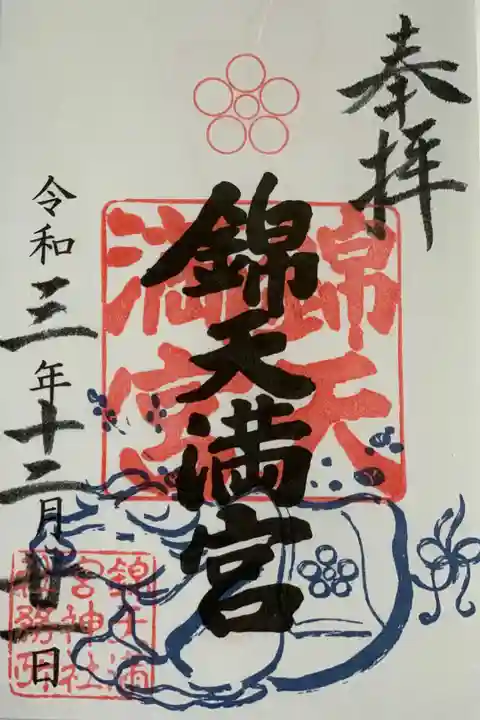 奉拝
錦天満宮
錦天
満宮
令和三年十二月廿一日
錦天満
宮神社
社務所